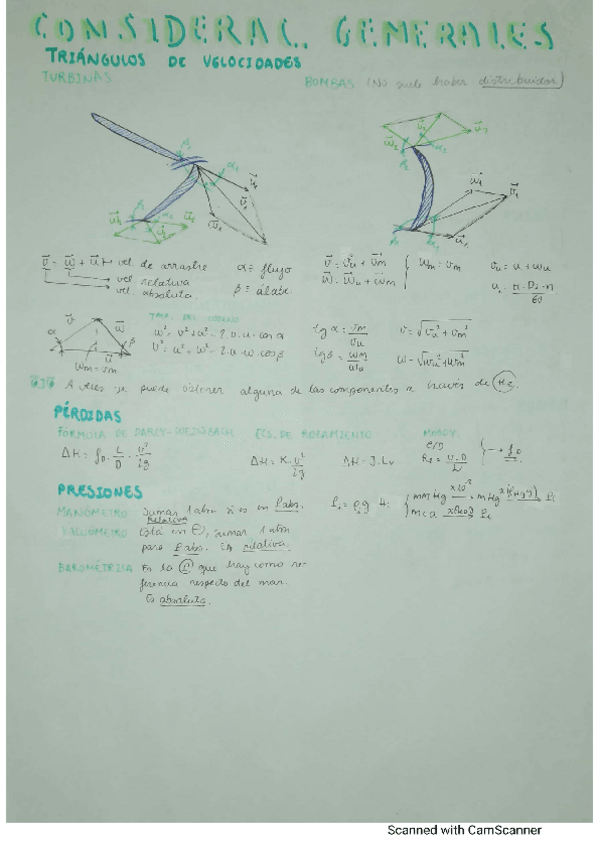 CONSIDERAC. GENERALES
TRIÁNGULOS DE VELOCIDADES
TURBINAS
BOMBAS (No suele haber distribuidor)
v = w + u → vel. de arrastre
vel. relativa
vel. absoluta
α = flujo
β = álabe
v = vu + vm
w = wu + wm
wm = vm
vu = u + wu
u = π·D·n / 60
TMA. DEL COSENO
w² = v² + u² - 2·v·u·cos α
v² = u² + w² - 2·u·w·cos β
wm = vm
tg α = vm / vu
tg β = wm / wu
v = √(vu² + vm²)
w = √(wu² + wm²)
A veces se puede obtener alguna de las componentes a través de
PÉRDIDAS
FÓRMULA DE DARCY-WEISBACH
ECS. DE ROZAMIENTO
MOODY
ΔH = fD · L/D · v²/2g
ΔH = K · v²/2g
ΔH = J·Lv
ε/D
Re = v·D / ν
→ fD
PRESIONES
MANÓMETRO Sumar 1 atm si es en Pabs.
Relativa
VACUÓMETRO Está en ⊖, sumar 1 atm
para Pabs. Es relativa.
BAROMÉTRICA Es la P que hay como re-
ferencia respecto del mar.
Es absoluta.
mmHg
mHg
mca
Scanned with CamScanner